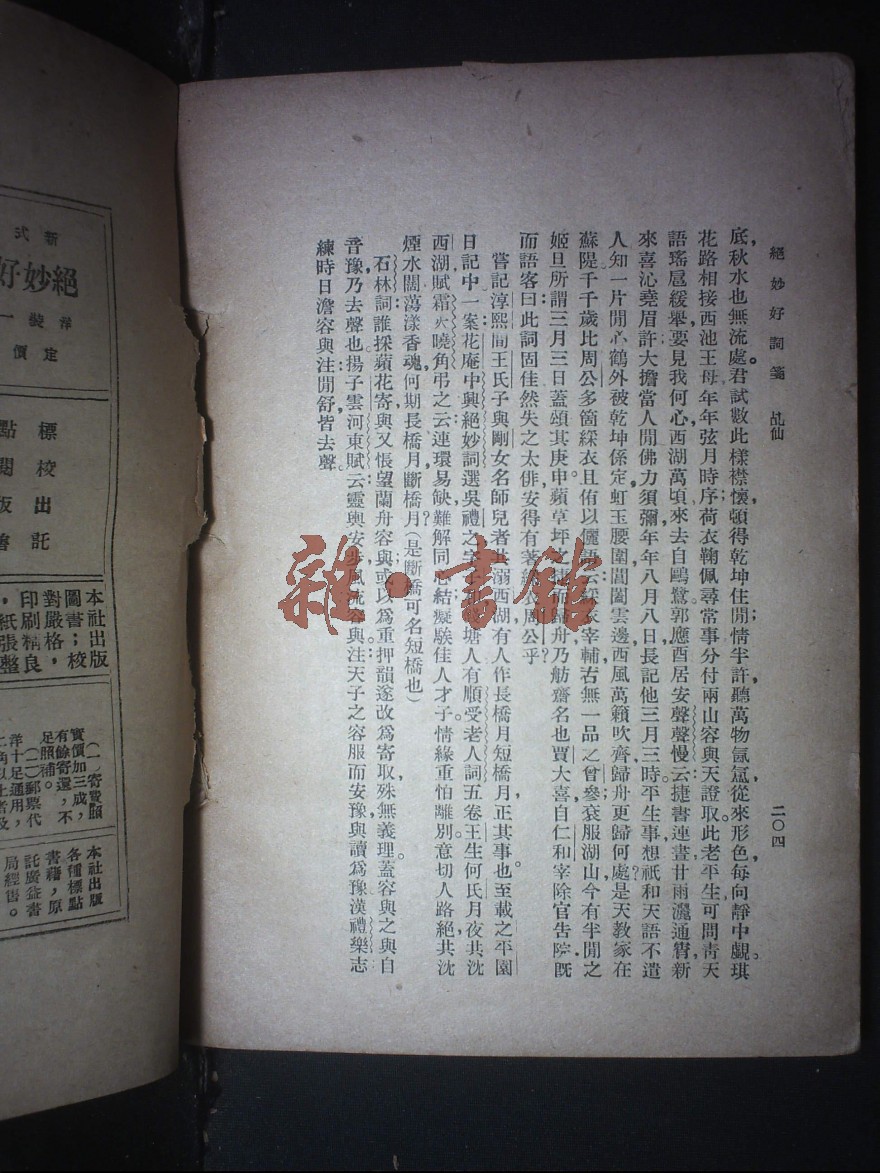 絕妙好詞箋 乩仙
二〇四
底，秋水也無流處。君試數此樣襟懷，頓得乾坤住。閒情半許，聽萬物氤氳，從來形色，每向靜中覷。琪
花路相接西池，王母年年弦月時序。荷衣鞠佩尋常事，分付兩山容與。天證取。此老平生可問靑天
語。瑤扈緩舉，要見我何心，西湖萬頃，來去自鷗鷺。郭應酉居安聲聲慢云：捷書連晝，甘雨灑通宵，新
來喜沁堯眉。許大擔當，人閒佛力須彌。年年八月八日，長記他三月三時。平生事，想祇和天語，不遣
人知。一片閒心鶴外，被乾坤係定，虹玉腰圍。閶闔雲邊，西風萬籟吹齊。歸舟更歸何處，是天教家在
蘇隄。千千歲，比周公多箇綵衣。且侑以儷語云：綵衣宰輔，古無一品之曾參；袞服湖山，今有半閒之
姬旦。所謂三月三日，蓋頌其庚申蘋草坪之捷，而歸舟乃舫齋名也。賈大喜，自仁和宰除官告院。旣
而語客曰：此詞固佳，然失之太俳，安得有著綵衣周公乎
嘗記淳熙間王氏子與陶女名師兒者，共溺西湖，有人作長橋月短橋月正其事也。至載之平園
日記中一案。花庵中興絕妙詞選吳禮之字子和，錢塘人，有順受老人詞五卷。王生何氏月夜共沈
西湖，賦霜天曉角弔之云：連環易缺，難解同心結。癡騃佳人才子，情緣重怕離別。意切人路絕，共沈
煙水闊。蕩漾香魂何期，長橋月斷橋月（是斷橋可名短橋也）
石林詞誰採蘋花寄與，又悵望蘭舟容與，或以爲重押韻，遂改爲寄取，殊無義理。蓋容與之與，自
音豫，乃去聲也。揚子雲河東賦云：靈輿安步，風流容與。注：天子之容服而安豫。與讀爲豫。漢禮樂志
練時日：澹容與。注：閒舒。皆去聲。
雜·書館
新式
絕妙好
洋裝一
定價
標點
校閱
出版
託售
本社出版
圖書；校
對嚴格，
印刷精良
，紙張整
（一）寄費照
實價加三成，
有餘寄還，不
足照補。
（二）郵票代
洋十足通用，
二角以上者及
本社出版
各種標點
書籍，原
託廣益書
局經售。